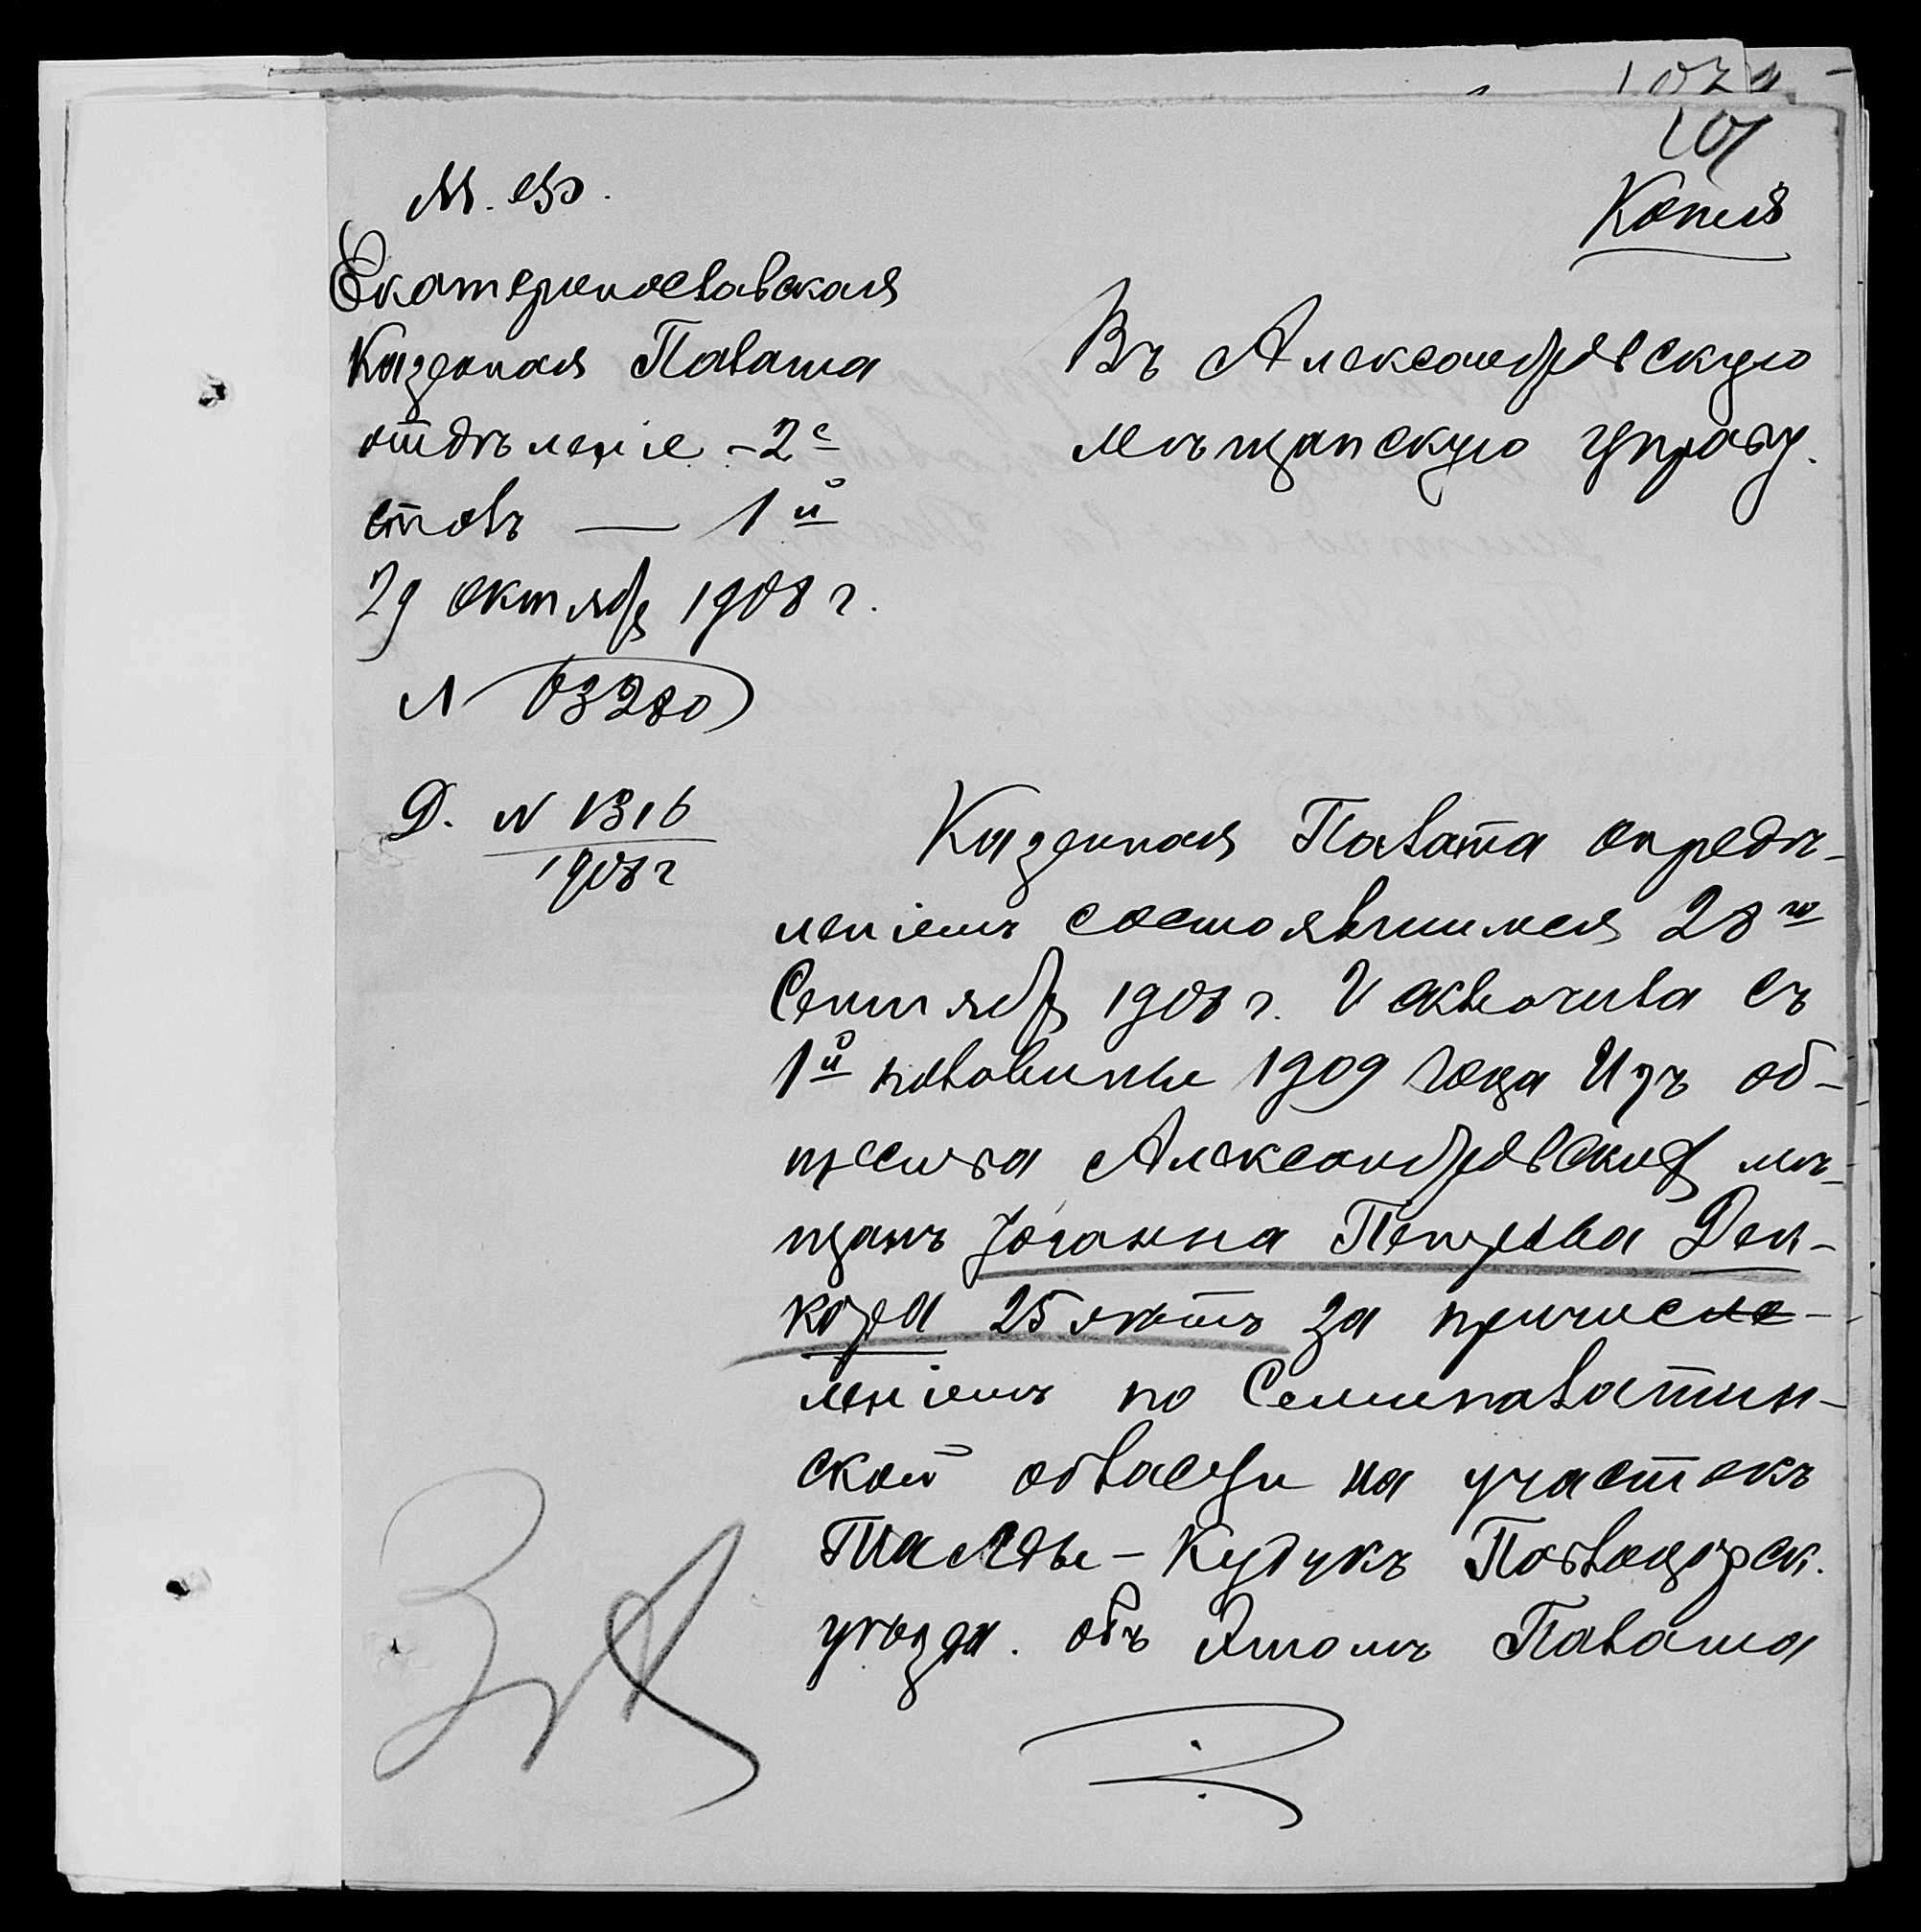 107
Копія
М. Ф.
Екатеринославская
Казенная Палата
отдѣленіе - 2е
столъ — 1й
29 октября 1908 г.
№ 63280
Д. № 1316
1908 г
Въ Александровскую
мѣщанскую управу.
Казенная Палата опредѣ-
леніемъ состоявшимся 28го
Сентября 1908 г. Исключила съ
1й половины 1909 года Изъ об-
щества Александровскихъ мѣ-
щанъ Іоганна Петрова Ден-
кера 25 лѣтъ за причисле-
леніемъ по Семипалатин-
ской области на участокъ
Талды-Кудукъ Павлодарск.
уѣзда. Объ этомъ Палата